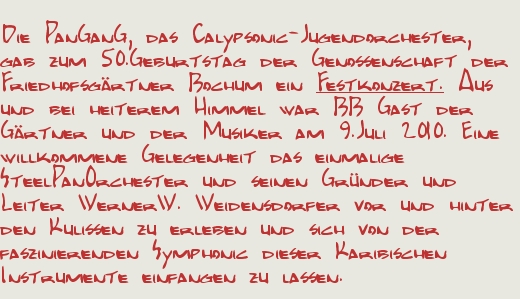 Die PanGanG, das Calypsonic-Jugendorchester,
gab zum 50.Geburtstag der Genossenschaft der
Friedhofsgärtner Bochum ein Festkonzert. Aus
und bei heiterem Himmel war BB Gast der
Gärtner und der Musiker am 9.Juli 2010. Eine
willkommene Gelegenheit das einmalige
SteelPanOrchester und seinen Gründer und
Leiter WernerW. Weidensdorfer vor und hinter
den Kulissen zu erleben und sich von der
faszinierenden Symphonic dieser Karibischen
Instrumente einfangen zu lassen.